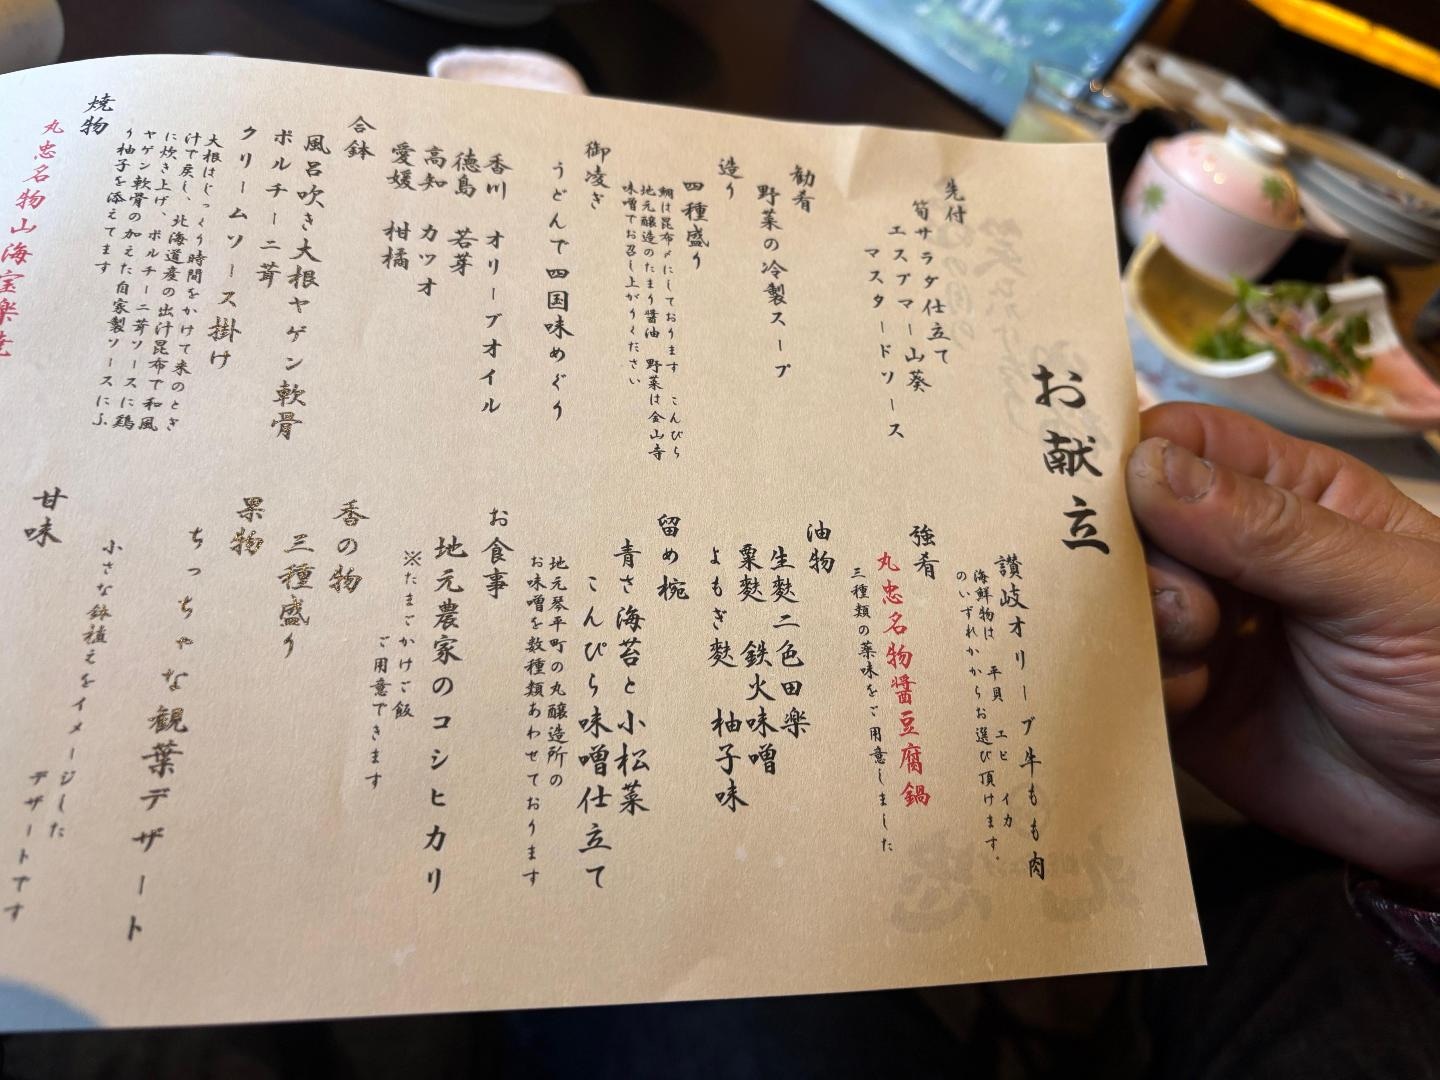 お献立
先付
筍サラダ仕立て
エスプマー山葵
マスタードソース
勧肴
野菜の冷製スープ
造り
四種盛り
鯛は昆布〆にしております こんぴら
地元醸造のたまり醤油 野菜は金山寺
味噌でお召し上がりください
御凌ぎ
うどんで四国味めぐり
香川 オリーブオイル
徳島 若芽
高知 カツオ
愛媛 柑橘
合鉢
風呂吹き大根ヤゲン軟骨
ポルチーニ茸
クリームソース掛け
大根はじっくり時間をかけて米のとぎ
汁で戻し、北海道産の出汁昆布で和風
に炊き上げ、ポルチーニ茸ソースに鶏
ヤゲン軟骨の加えた自家製ソースにふ
り柚子を添えてます
焼物
丸忠名物山海宝楽焼
讃岐オリーブ牛もも肉
海鮮物は 平貝 エビ イカ
のいずれかからお選び頂けます。
強肴
丸忠名物醤豆腐鍋
三種類の薬味をご用意しました
油物
生麩二色田楽
粟麩 鉄火味噌
よもぎ麩 柚子味
留め椀
青さ海苔と小松菜
こんぴら味噌仕立て
地元琴平町の丸醸造所の
お味噌を数種類あわせております
お食事
地元農家のコシヒカリ
※たまごかけご飯
ご用意できます
香の物
三種盛り
果物
ちっちゃな観葉デザート
小さな鉢植えをイメージした
デザートです
甘味